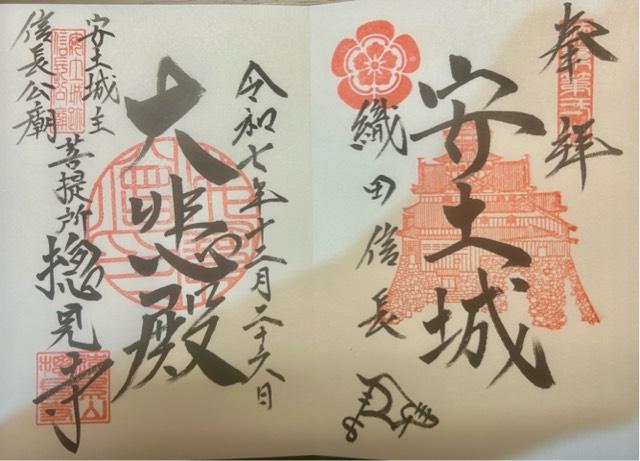 奉拝
安土城
織田信長
令和七年十二月二十六日
大悲殿
安土城主
信長公廟
菩提所
摠見寺